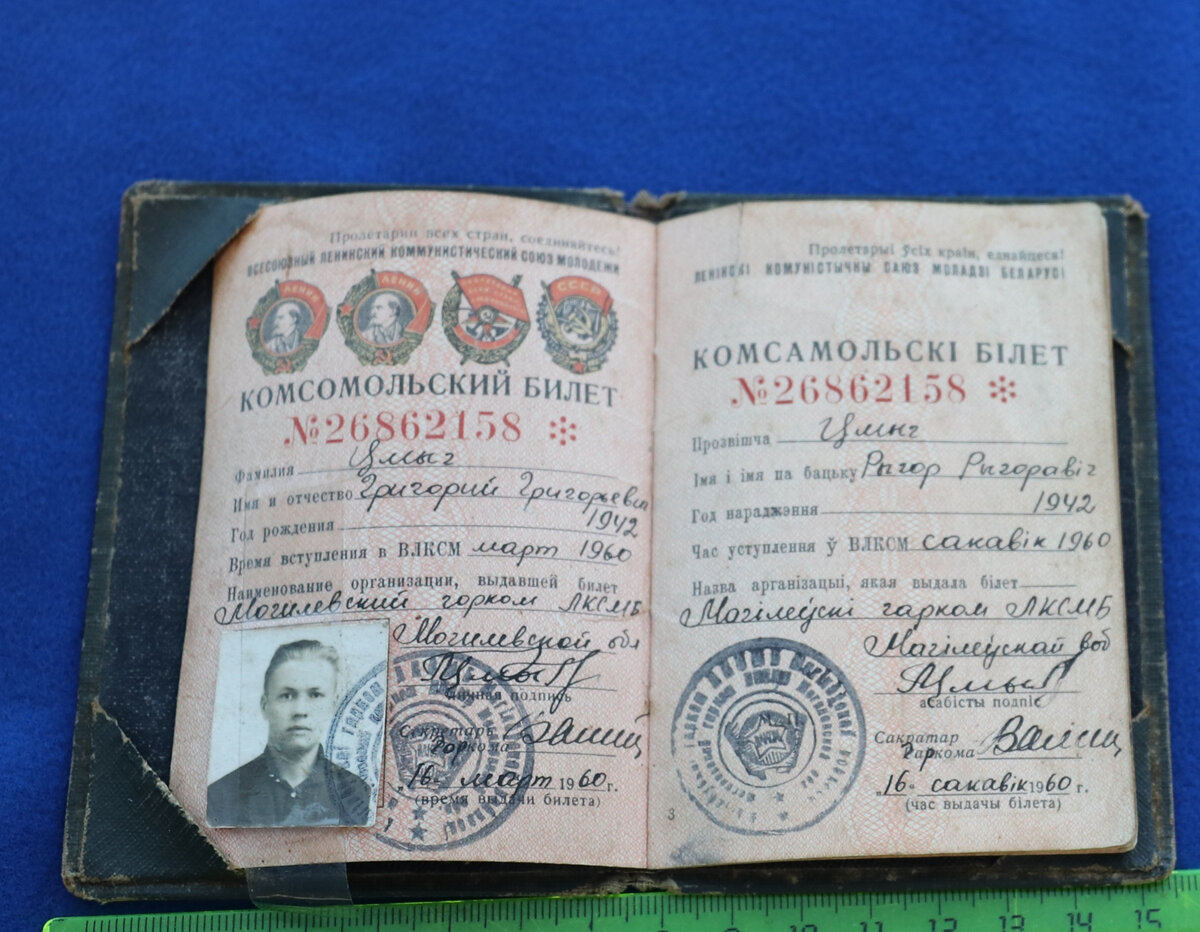 Пролетарии всех стран, соединяйтесь!
ВСЕСОЮЗНЫЙ ЛЕНИНСКИЙ КОММУНИСТИЧЕСКИЙ СОЮЗ МОЛОДЕЖИ
ЛЕНИН ЛЕНИН СССР
КОМСОМОЛЬСКИЙ БИЛЕТ
№26862158
Фамилия Цмыг
Имя и отчество Григорий Григорьевич
Год рождения 1942
Время вступления в ВЛКСМ март 1960
Наименование организации, выдавшей билет
Могилевский горком ЛКСМБ
Могилевской обл
Личная подпись
Секретарь
Горкома
"16" март 1960 г.
(время выдачи билета)
Пролетарыі ўсіх краін, еднайцеся!
ЛЕНІНСКІ КОМУНІСТЫЧНЫ САЮЗ МОЛАДЗІ БЕЛАРУСІ
КОМСАМОЛЬСКІ БІЛЕТ
№26862158
Прозвішча Цмыг
Імя і імя па бацьку Рыгор Рыгоравіч
Год нараджэння 1942
Час уступлення ў ВЛКСМ сакавік 1960
Назва арганізацыі, якая выдала білет
Магілеўскі гарком ЛКСМБ
Магілеўскай воб
асабісты подпіс
Сакратар
Гаркома
"16" сакавік 1960 г.
(час выдачы білета)
3
12 13 14 15